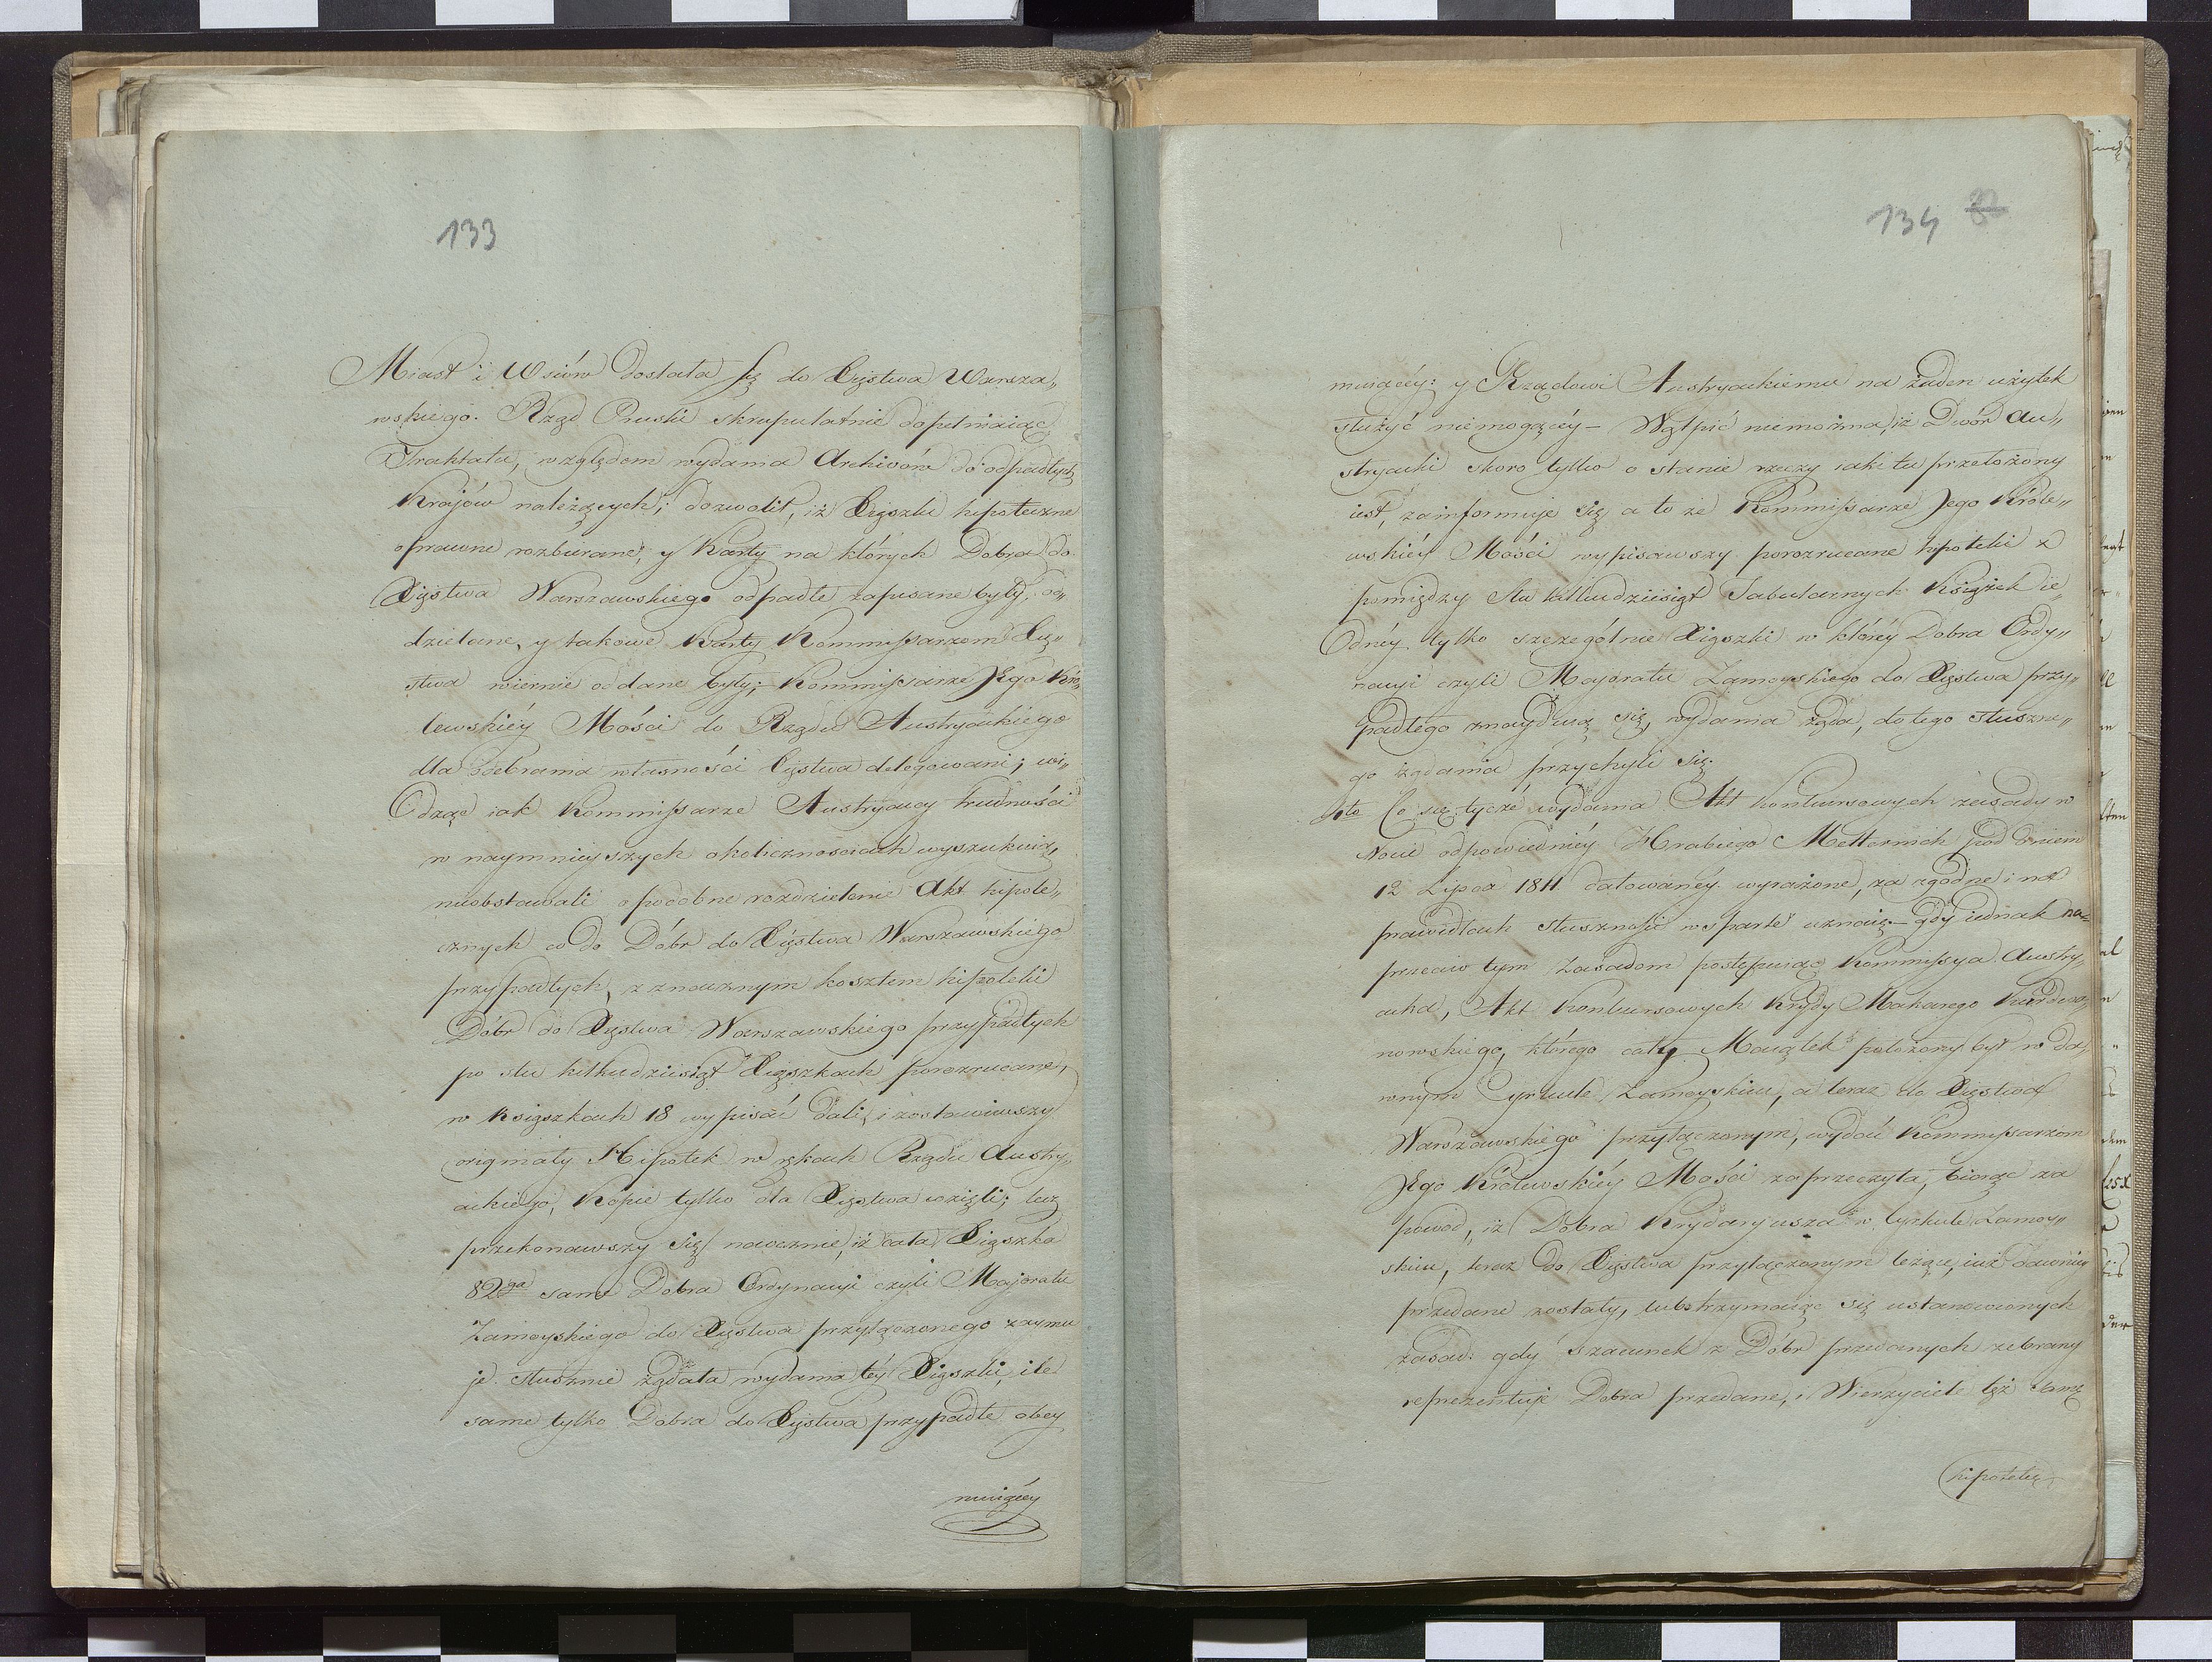 133
Miast i Wsiów dostała się do Xięstwa Warsza„
wskiego. Rząd Pruski skrupulatnie dopełniaiąc
Traktatu, względem wydania Archivów do odpadłych
Kraiów należących, dozwolił, iż Xięszki hipoteczne
oprawne rozbierane, y Karty na których Dobra do
Xięstwa Warszawskiego odpadłe zapisane były, od„
dzielane, y takowe Karty Kommissarzom Xię„
stwa wiernie oddane były; Kommissarze Jego Kró„
lewskiéy Mości do Rządu Austryackiego
dla odebrania własności Xięstwa delegowani; wi„
dząc iak Kommissarze Austryaccy trudności
w naymnieyszych okolicznościach wyszukuią,
nieobstawali o podobne rozdzielenie Akt hipote„
cznych co do Dóbr do Xięstwa Warszawskiego
przypadłych, z znacznym kosztem hipoteki
Dóbr do Xięstwa Warszawskiego przypadłych
po stu kilkudziesiąt Xiąszkach porozrucane,
w Ksiąszkach 18 wypisać dali, i zostawiwszy
originały Hipotek w rękach Rządu Austry„
ackiego, Kopie tylko dla Xięstwa wzięli; lecz
przekonawszy się naocznie, iż cała Xiąszka
82ga same Dobra Ordynacyi czyli Majoratu
Zamoyskiego do Xięstwa przyłączonego zaymu
je słusznie żądała wydania téy Xiąszki, ile
same tylko Dobra do Xięstwa przypadłe obey
muiącéy
134 32
muiącéy: y Rządowi Austryackiemu na żaden użytek
służyć niemogącéy – Wątpić niemożna, iż Dwór Au„
stryacki skoro tylko o stanie rzeczy iaki tu przełożony
iest, zainformuje się a to że Kommissarze Jego Króle„
wskiéy Mości wypisawszy porozrucane hipoteki z
pomiędzy stu kilkudziesiąt Tabularnych Książek ie„
dnéy tylko szczególnie Xiąszki w któréy Dobra Ordy„
nacyi czyli Majoratu Zamoyskiego do Xięstwa przy„
padłego znayduią się, wydania żąda, do tego słuszne„
go żądania przychyli się.
4to Co się tycze wydania Akt konkursowych zasady w
Nocie odpowiednéy Hrabiego Metternich pod dniem
12 Lipca 1811 datowanéy wyrażone, za zgodne i na
prawidłach słuszności wsparte uznaię – gdy iednak na„
przeciw tym zasadom postępuiąc Kommissya Austry„
acka, Akt Konkursowych Krydy Makarego Kurdwa„
nowskiego, którego cały Maiątek położony był w da„
wnym Cyrkule Zamoyskim, a teraz do Xięstwa
Warszawskiego przyłączonym, wydać Kommissarzom
Jego Królewskiéy Mości zaprzeczyła, biorąc za
powód, iż Dobra Krydaryusza w Cyrkule Zamoy„
skim, teraz do Xięstwa przyłączonym leżące, iuż dawniey
przedane zostały, lubo trzymaiąc się ustanowionych
zasad: gdy szacunek z Dóbr przedanych zebrany
reprezentuje Dobra przedane, i Wierzyciele tęż samę
hipotekę